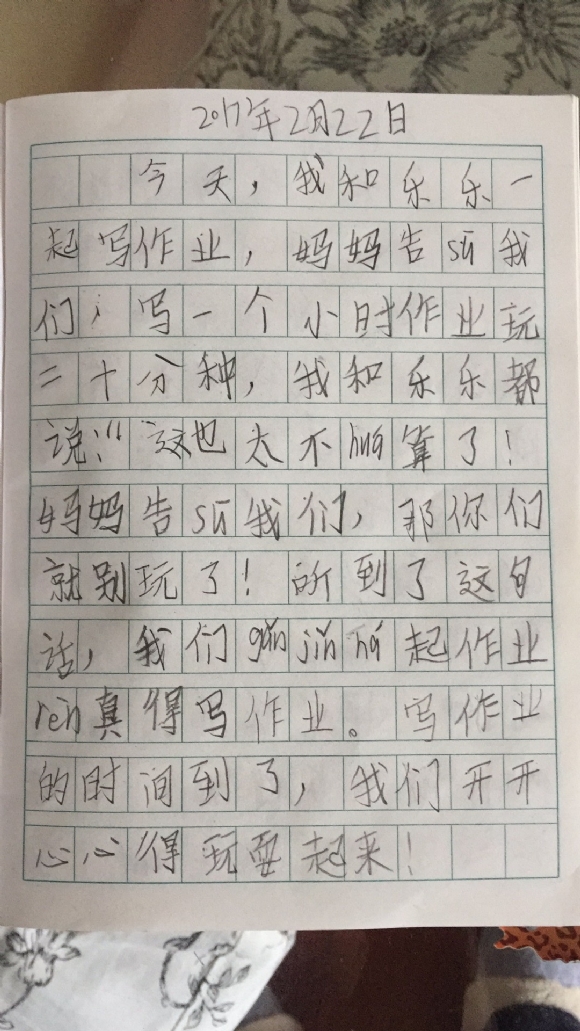 2017年2月22日
今天，我和乐乐一
起写作业，妈妈告sū我
们，写一个小时作业玩
二十分种，我和乐乐都
说：“这也太不huá算了！
妈妈告sū我们，那你们
就别玩了！所到了这句
话，我们gǎn jǐn ná起作业
rèn真得写作业。写作业
的时间到了，我们开开
心心得玩耍起来！